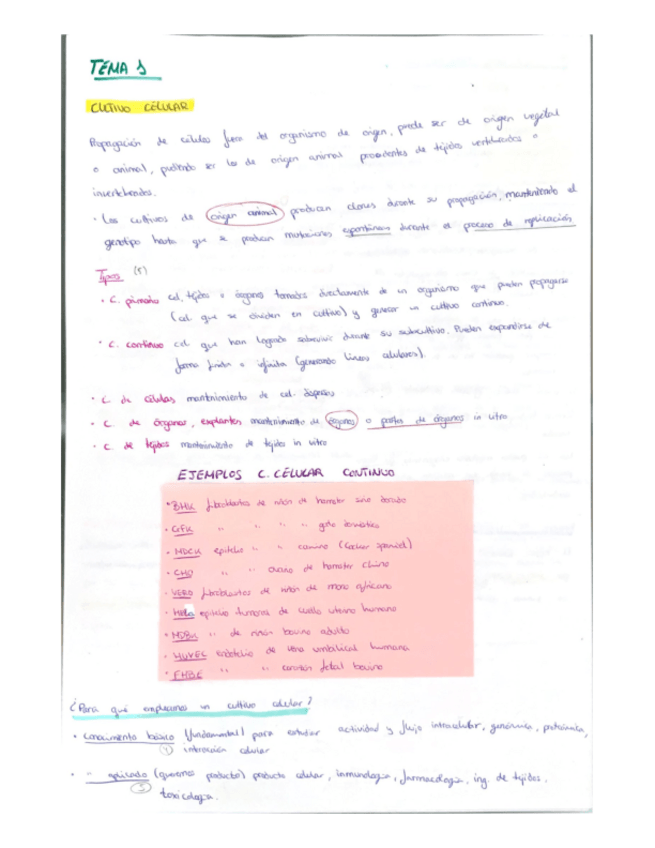 TEMA 1
CULTIVO CELULAR
Propagación de células fuera del organismo de origen, puede ser de origen vegetal
o animal, pudiendo ser los de origen animal procedentes de tejidos vertebrados o
invertebrados.
· Los cultivos de origen animal producen clones durante su propagación, manteniendo el
genotipo hasta que se producen mutaciones espontáneas durante el proceso de replicación
Tipos (5)
· C. primario cel, tejidos u órganos tomados directamente de un organismo que pueden propagarse
(cel que se dividen en cultivo) y generar un cultivo continuo.
· C. continuo cel que han logrado sobrevivir durante su subcultivo. Pueden expandirse de
forma finita o infinita (generando líneas celulares).
· C. de células mantenimiento de cel. dispersas
· C. de órganos, explantes mantenimiento de órganos o partes de órganos in vitro
· C. de tejidos mantenimiento de tejidos in vitro
EJEMPLOS C. CELULAR CONTINUO
· BHK fibroblastos de riñón de hamster sirio dorado
· CrFK " " " " gato doméstico
· MDCK epitelio " " canino (Cocker Spaniel)
· CHO " " ovario de hamster chino
· VERO fibroblastos de riñón de mono africano
· HeLa epitelio tumoral de cuello uterino humano
· MDBK " de riñón bovino adulto
· HUVEC endotelio de vena umbilical humana
· FHBE " " corazón fetal bovino
¿Para qué empleamos un cultivo celular?
· Conocimiento básico (fundamental) para estudiar actividad y flujo intracelular, genómica, proteómica,
interacción celular
· " aplicado (queremos producto) producto celular, inmunología, farmacología, ing. de tejidos,
toxicología.